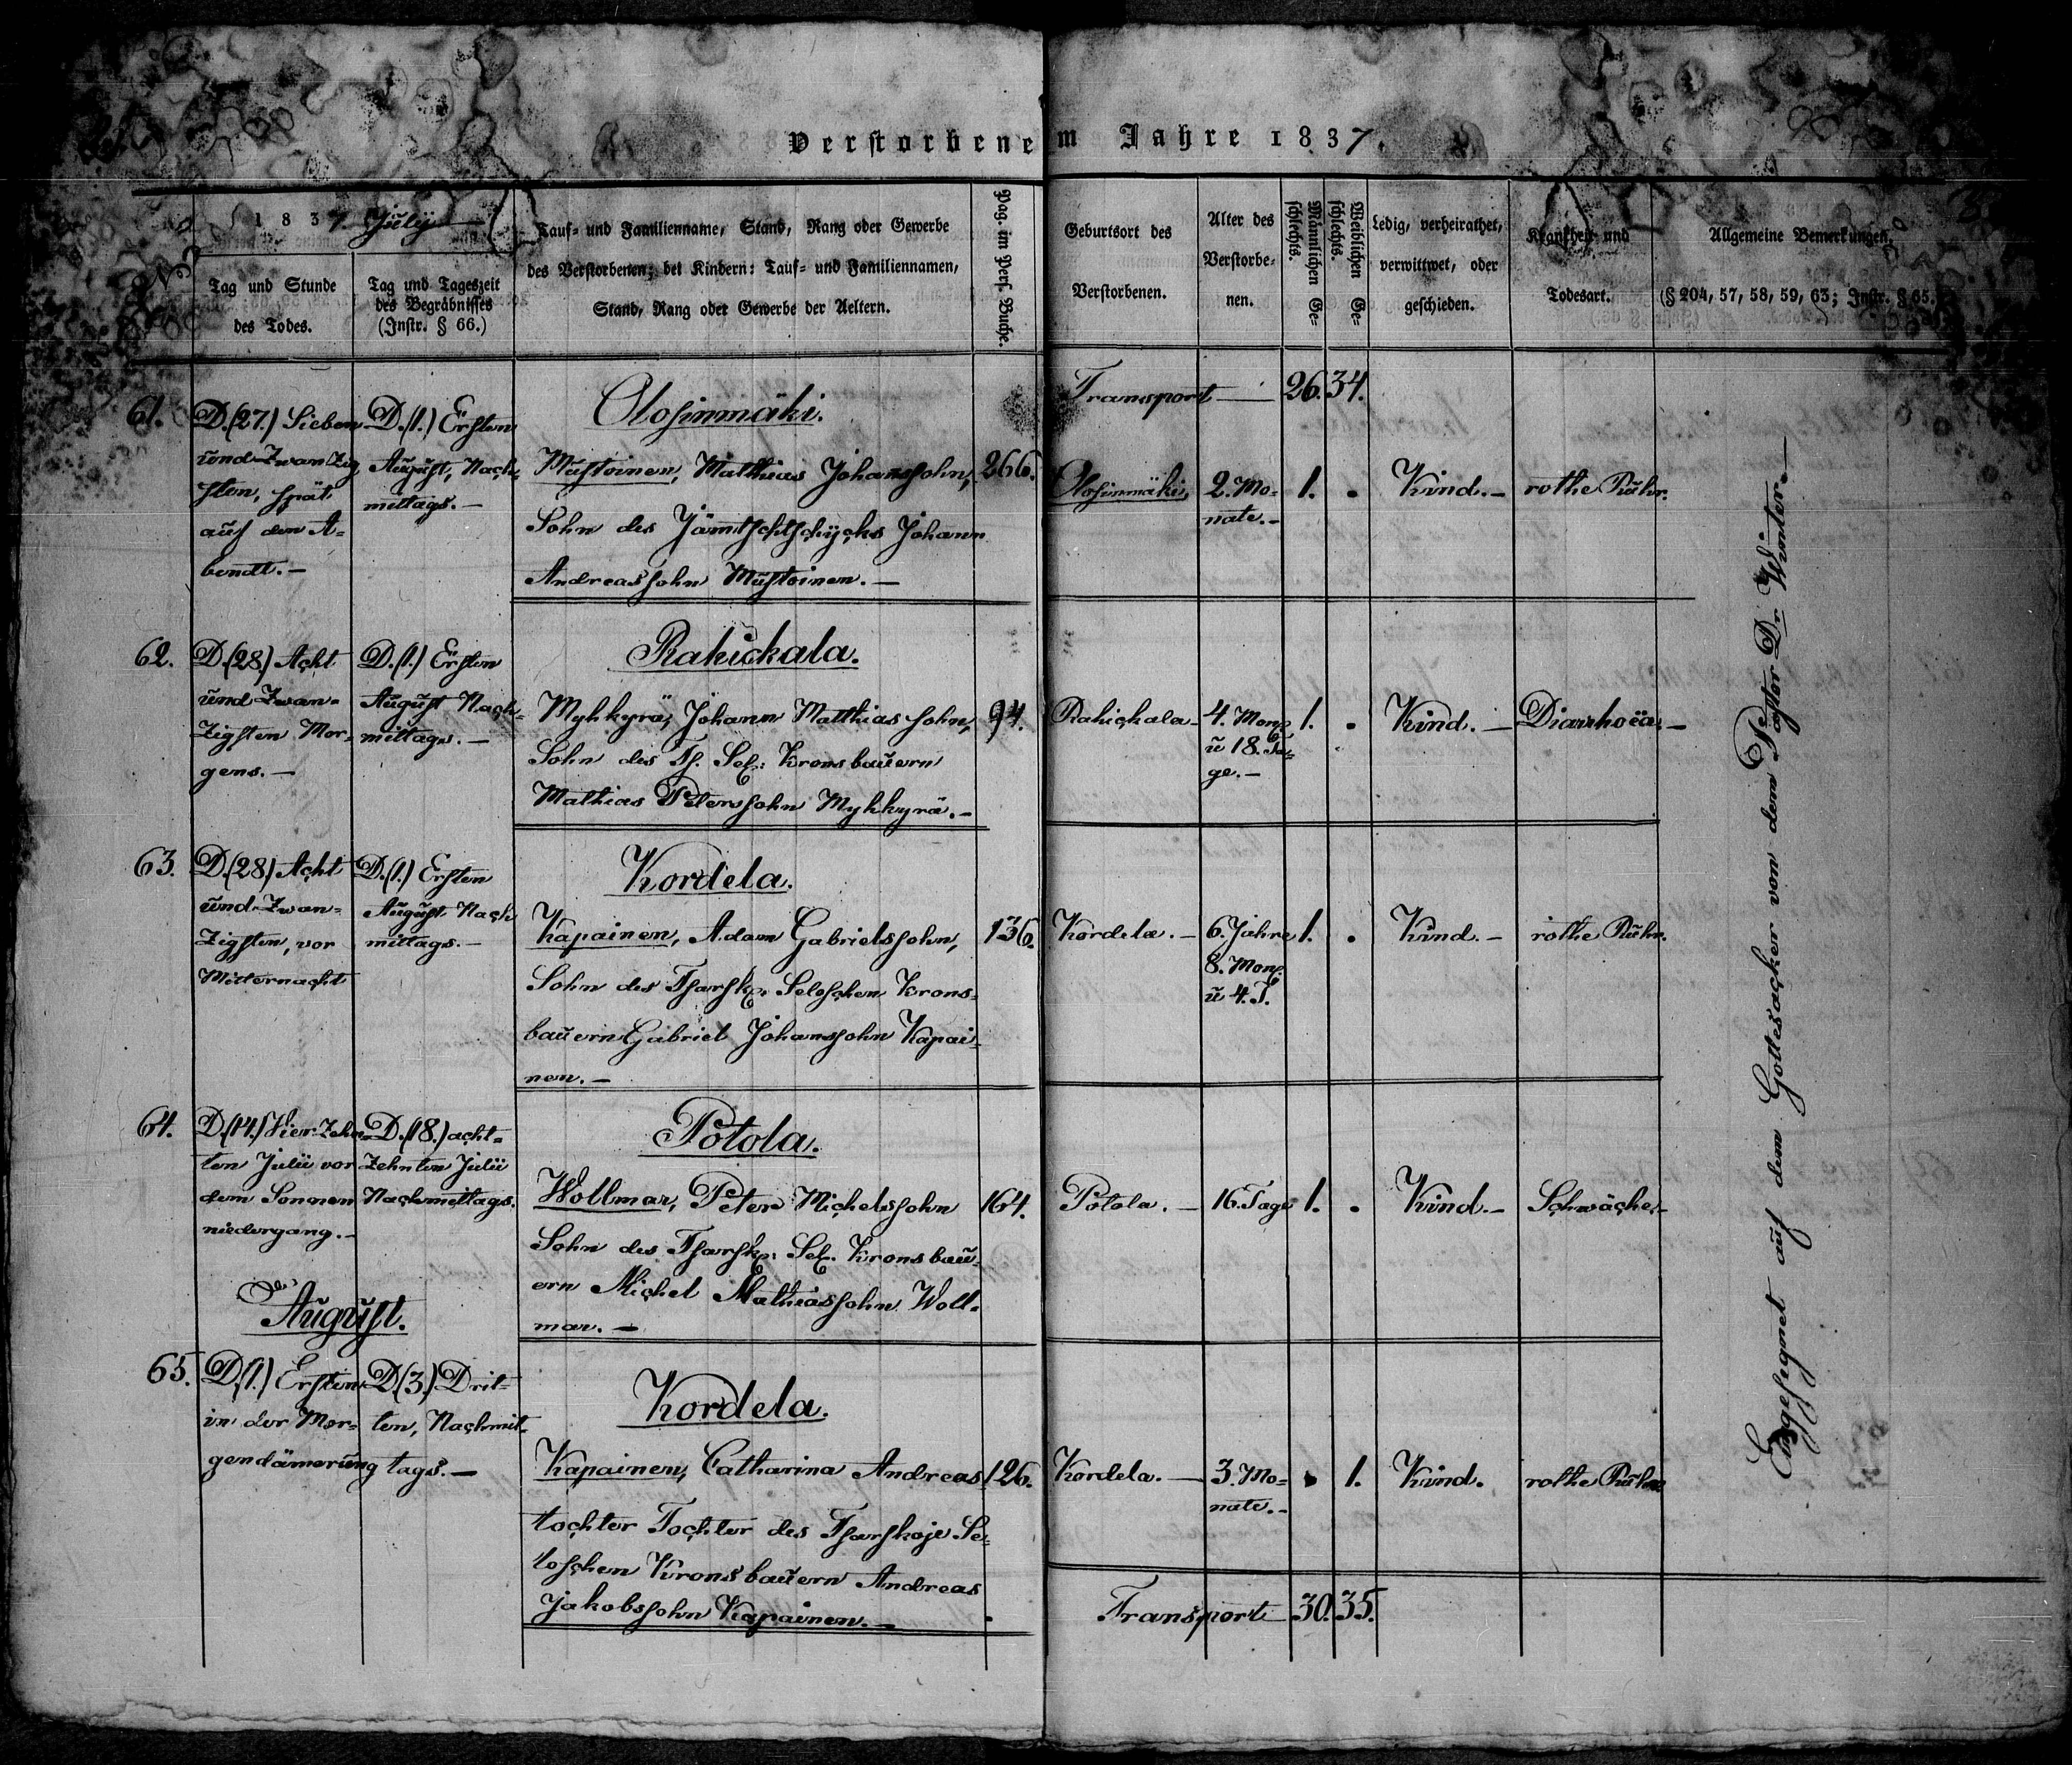 Verstorbene im Jahre 1837.
No
1837. July
Tag und Stunde
des Todes.
Tag und Tageszeit
des Begräbnisses
(Instr. § 66.)
Tauf- und Familienname, Stand, Rang oder Gewerbe
des Verstorbenen; bei Kindern: Tauf- und Familiennamen,
Stand, Rang oder Gewerbe der Aeltern.
Pag. im Pers. Buche.
Geburtsort des
Verstorbenen.
Alter des
Verstorbe-
nen.
Männlichen Ge-
schlechts.
Weiblichen Ge-
schlechts.
Ledig, verheirathet,
verwittwet, oder
geschieden.
Krankheit und
Todesart.
Allgemeine Bemerkungen.
(§ 204, 57, 58, 59, 63; Instr. § 65.)
Transport — 26. 34.
61.
D. (27.) Sieben
und Zwanzig
sten, spät
auf den A-
bendt. —
D. (1.) Ersten
August, Nach-
mittags. —
Olosinmäki.
Mustoinen, Matthias Johanssohn,
Sohn des Jämtschtschycks Johann
Andreassohn Mustoinen. —
266.
Olosinmäki,
2. Mo-
nate. —
1.
.
Kind. —
rothe Ruhr.
62.
D. (28) Acht
und Zwan-
zigsten Mor-
gens. —
D. (1.) Ersten
August Nach-
mittags. —
Rahickala.
Myhkyrä, Johann Matthiassohn,
Sohn des Ts. Sel: Kronsbauern
Mathias Peterssohn Myhkyrä. —
94.
Rahickala —
4. Mon:
u 18. Ta-
ge. —
1.
.
Kind. —
Diarrhoëa. —
63.
D. (28) Acht
und Zwan-
zigsten, vor
Mitternacht
D. (1.) Ersten
August Nach
mittags. —
Kordela.
Kapainen, Adam Gabrielssohn,
Sohn des Tsarsk: Seloschen Krons-
bauern Gabriel Johanssohn Kapai-
nen. —
136.
Kordela. —
6. Jahre
8. Mon:
u 4. T.
1.
.
Kind. —
rothe Ruhr.
64.
D. (14.) Vierzehn
ten Julii vor
dem Sonnen
niedergang. —
D. (18.) acht-
zehnten Julii
Nachmittags.
Potola.
Wollmar, Peter Michelssohn
Sohn des Tsarsk: Sel. Kronsbau-
ern Michel Mathiassohn Woll-
mar. —
164.
Potola. —
16. Tage
1.
.
Kind. —
Schwäche. —
August.
65.
D. (1.) Ersten
in der Mor-
gendämerung
D. (3.) Drit-
ten, Nachmit-
tags. —
Kordela.
Kapainen, Catharina Andreas
tochter Tochter des Tsarskoje Se-
loschen Kronsbauern Andreas
Jakobssohn Kapainen. —
126.
Kordela. —
3. Mo-
nate. —
.
1.
Kind.
rothe Ruhr
Transport 30. 35.
Eingesegnet auf dem Gottesacker von dem Pastor Dr. Winter. —